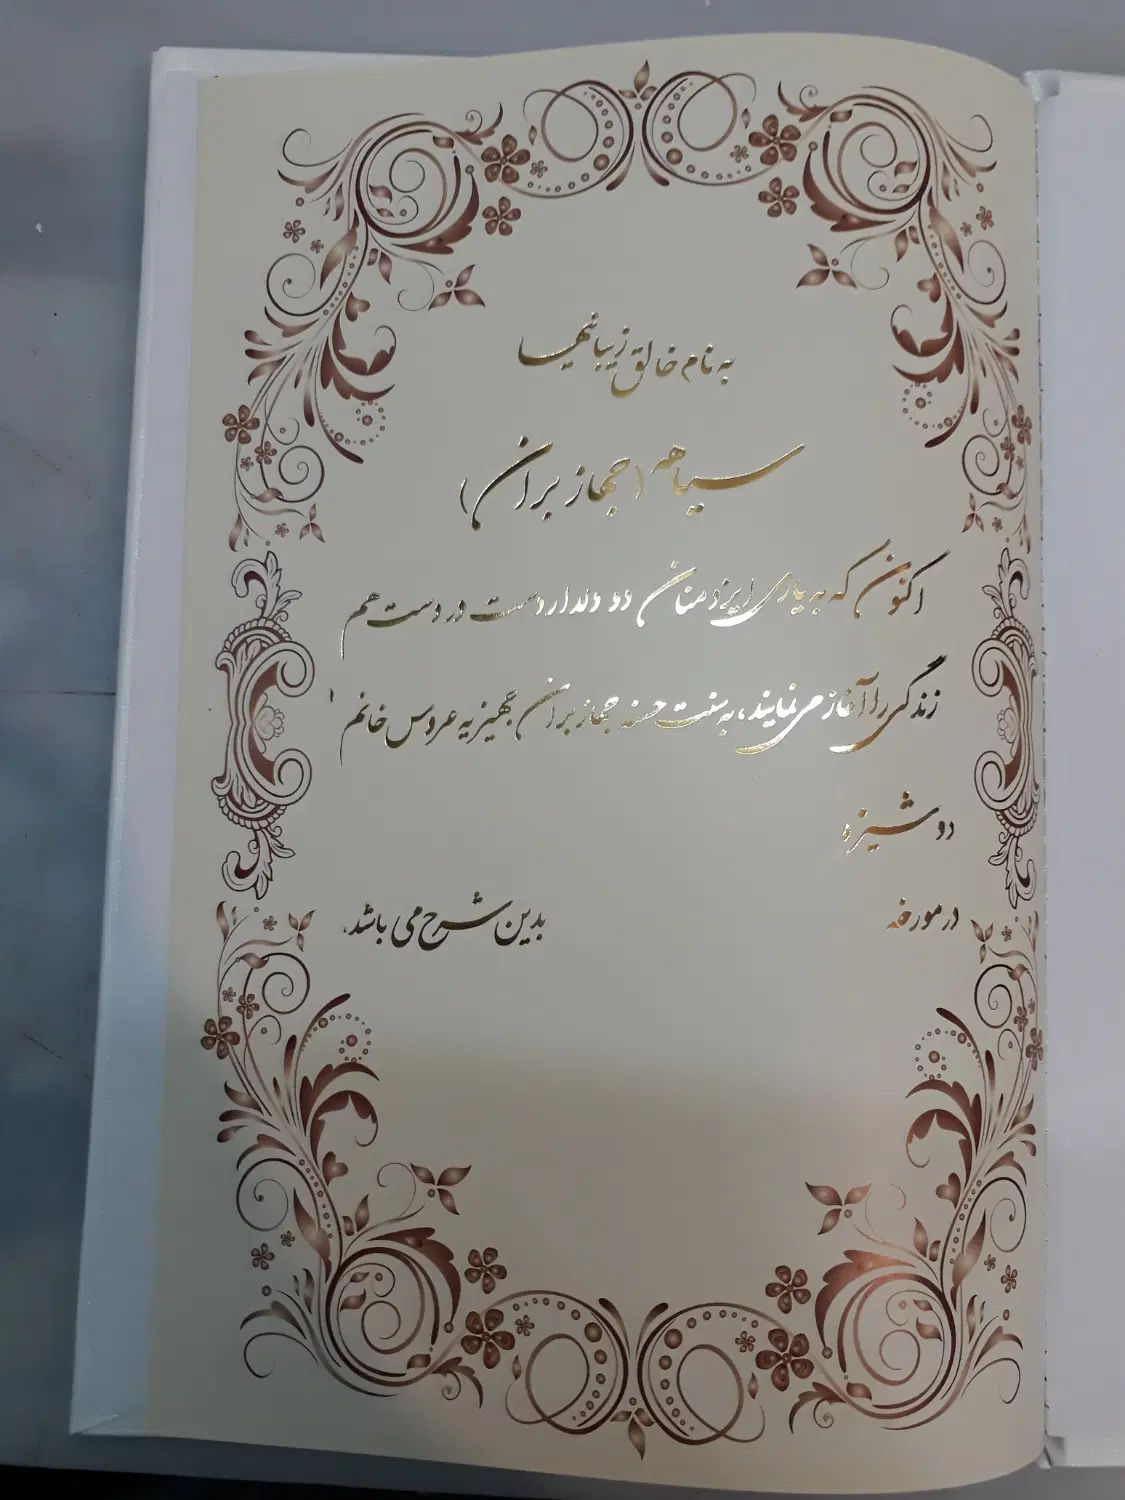 به نام خالق زیبائیها
سیاهه (جهاز بران)
اکنون که به یاری ایزد منان دو دلدار دست در دست هم
زندگی را آغاز می نمایند، به سنت حسنه جهاز بران جهیزیه عروس خانم
دوشیزه
در مورخه بدین شرح می باشد.